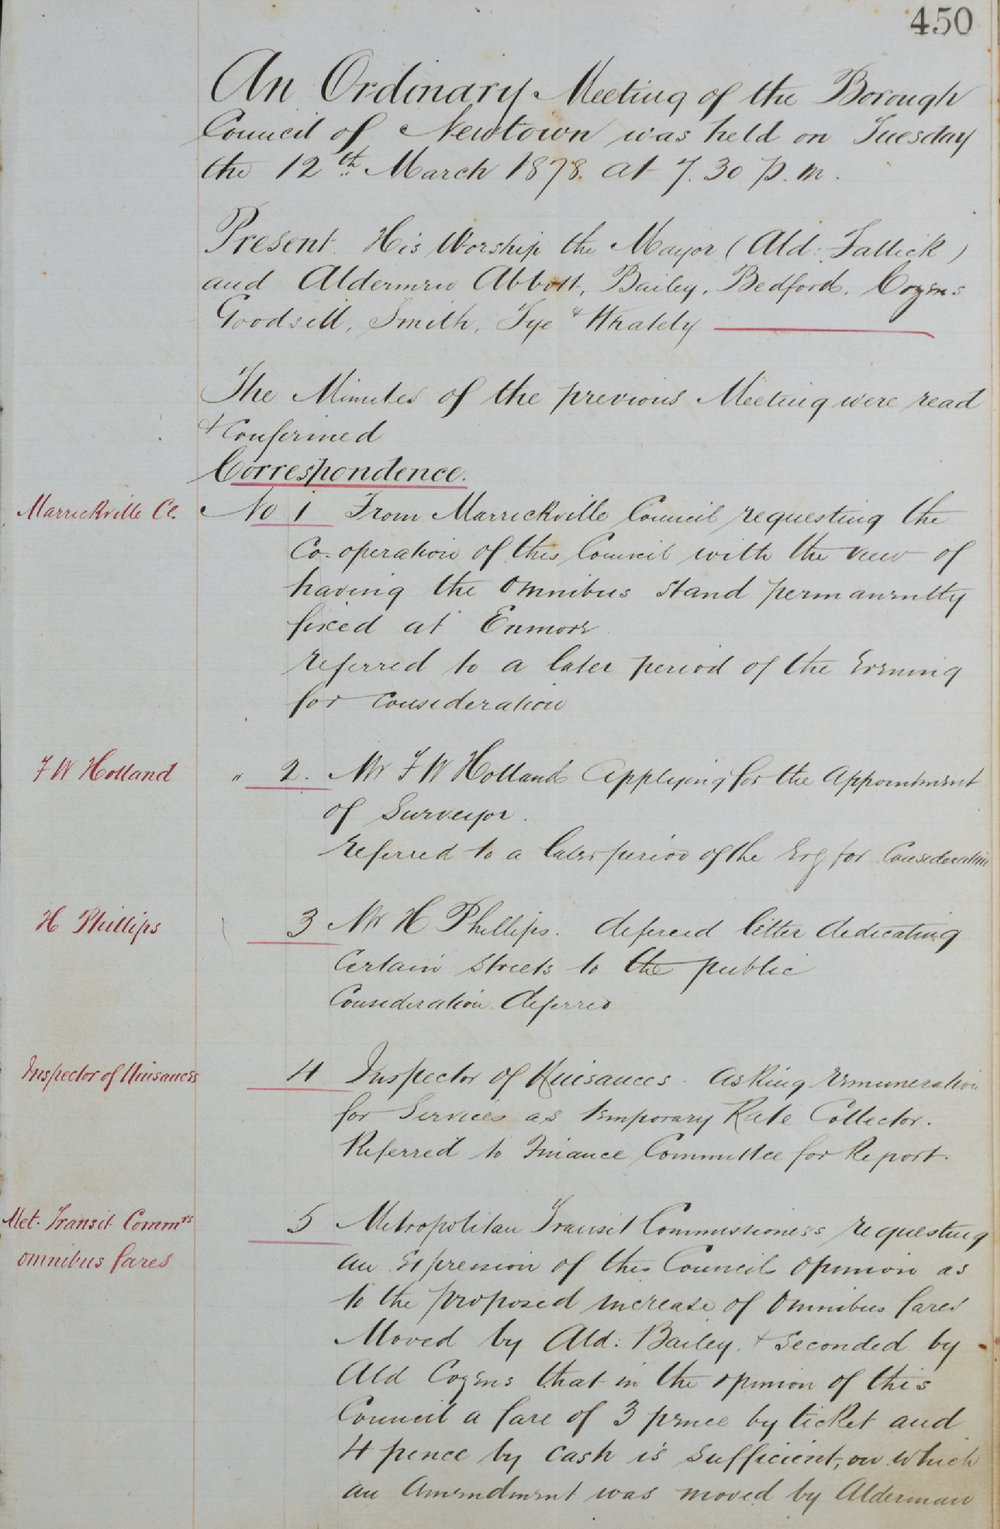 450
An Ordinary Meeting of the Borough
Council of Newtown was held on Tuesday
the 12th March 1878 at 7.30 p.m.
Present His Worship the Mayor (Ald: Fallick)
and Aldermen Abbott, Bailey, Bedford, Cozens
Goodsell, Smith, Tye & Whately
The Minutes of the previous Meeting were read
& Confirmed
Correspondence.
Marrickville Cl.
No 1 From Marrickville Council requesting the
Co-operation of this Council with the view of
having the Omnibus stand permanently
fixed at Enmore
referred to a later period of the Evening
for consideration
F W Holland
" 2. Mr F W Holland Applying for the Appointment
of Surveyor.
referred to a later period of the Evg for Consideration
H Phillips
3 Mr H Phillips. deferred letter dedicating
Certain streets to the public
Consideration deferred
Inspector of Nuisances
4 Inspector of Nuisances. asking remuneration
for Services as temporary Rate Collector.
Referred to Finance Committee for Report.
Met. Transit Commrs
omnibus fares
5 Metropolitan Transit Commissioners requesting
an Expression of this Councils opinion as
to the proposed increase of Omnibus fares
Moved by Ald: Bailey. & Seconded by
Ald Cozens that in the opinion of this
Council a fare of 3 pence by ticket and
4 pence by cash is sufficient, on which
an Amendment was moved by Alderman